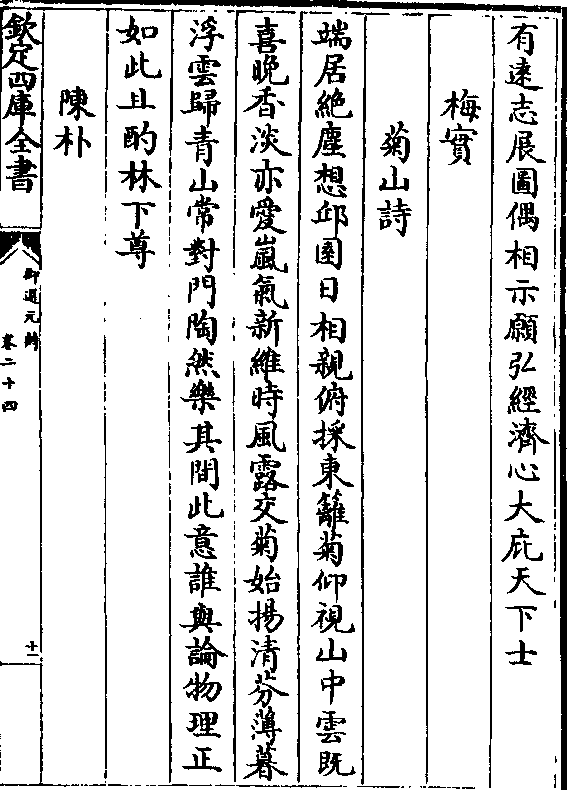 有逺志展圖偶相示願弘經濟心大庇天下士
梅實
菊山詩
端居絶塵想邱園日相親俯採東籬菊仰視山中雲既
喜晚香淡亦愛嵐氣新維時風露交菊始揚清芬薄暮
浮雲歸青山常對門陶然樂其間此意誰與論物理正
如此且酌林下尊
陳朴
欽定四庫全書
御選元詩
卷二十四
十一